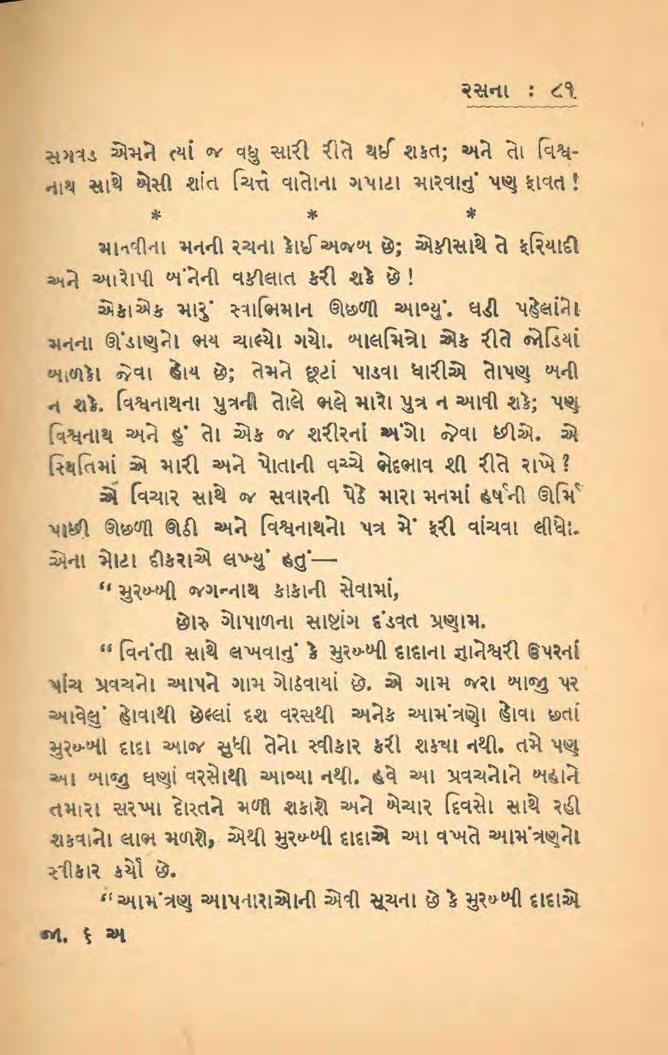 રસના : ૮૧
સગવડ એમને ત્યાં જ વધુ સારી રીતે થઈ શકત; અને તો વિશ્વ-
નાથ સાથે બેસી શાંત ચિત્તે વાતોના ગપાટા મારવાનું પણ ફાવત !
* * *
માનવીના મનની રચના કોઈ અજબ છે; એકીસાથે તે ફરિયાદી
અને આરોપી બંનેની વકીલાત કરી શકે છે !
એકાએક મારું સ્વાભિમાન ઊછળી આવ્યું. ઘડી પહેલાંનો
મનના ઊંડાણનો ભય ચાલ્યો ગયો. બાલમિત્રો એક રીતે જોડિયાં
બાળકો જેવા હોય છે; તેમને છૂટાં પાડવા ધારીએ તોપણ બની
ન શકે. વિશ્વનાથના પુત્રની તોલે ભલે મારો પુત્ર ન આવી શકે; પણ
વિશ્વનાથ અને હું તો એક જ શરીરનાં અંગો જેવા છીએ. એ
સ્થિતિમાં એ મારી અને પોતાની વચ્ચે ભેદભાવ શી રીતે રાખે ?
એ વિચાર સાથે જ સવારની પેઠે મારા મનમાં હર્ષની ઊર્મિ
પાછી ઊછળી ઊઠી અને વિશ્વનાથનો પત્ર મેં ફરી વાંચવા લીધો.
એના મોટા દીકરાએ લખ્યું હતું—
“ મુરબ્બી જગન્નાથ કાકાની સેવામાં,
છોરુ ગોપાળના સાષ્ટાંગ દંડવત પ્રણામ.
“ વિનંતી સાથે લખવાનું કે મુરબ્બી દાદાના જ્ઞાનેશ્વરી ઉપરનાં
પાંચ પ્રવચનો આપને ગામ ગોઠવાયાં છે. એ ગામ જરા બાજુ પર
આવેલું હોવાથી છેલ્લાં દશ વરસથી અનેક આમંત્રણો હોવા છતાં
મુરબ્બી દાદા આજ સુધી તેનો સ્વીકાર કરી શકયા નથી. તમે પણ
આ બાજુ ઘણાં વરસોથી આવ્યા નથી. હવે આ પ્રવચનોને બહાને
તમારા સરખા દોસ્તને મળી શકાશે અને બેચાર દિવસો સાથે રહી
શકવાનો લાભ મળશે, એથી મુરબ્બી દાદાએ આ વખતે આમંત્રણનો
સ્વીકાર કર્યો છે.
“ આમંત્રણ આપનારાઓની એવી સૂચના છે કે મુરબ્બી દાદાએ
જા. ૬ અ